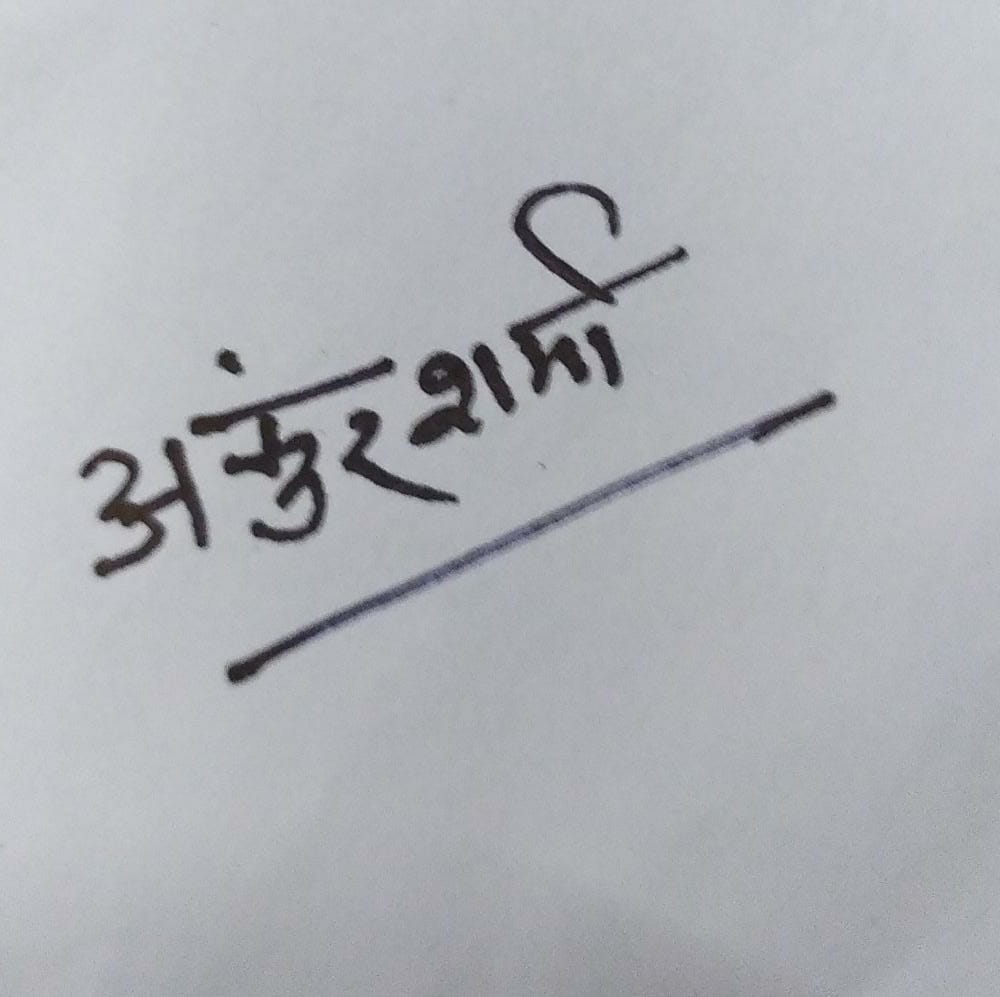 अंकुर शर्मा